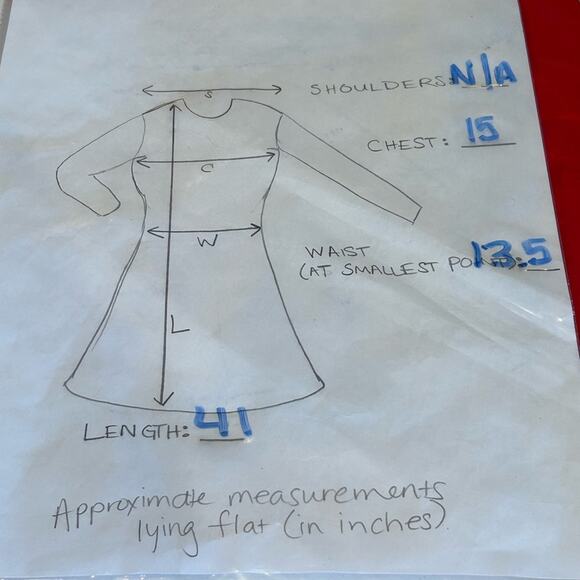 S
SHOULDERS: N/A
C
CHEST: 15
W
WAIST
(AT SMALLEST POINT): 13.5
L
LENGTH: 41
Approximate measurements
lying flat (in inches).